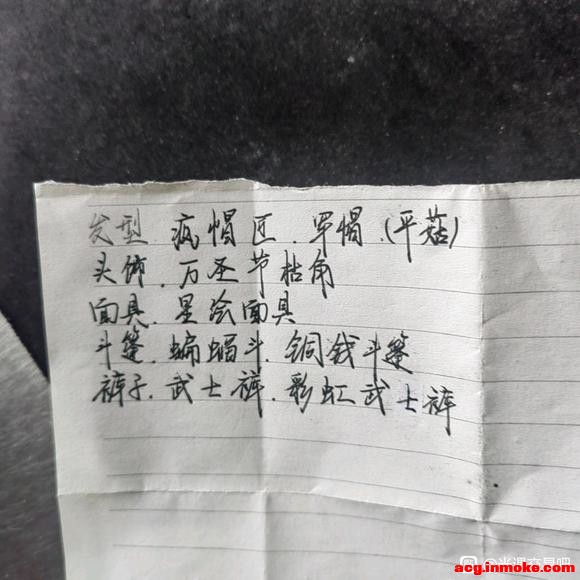 发型.疯帽匠.罩帽.(平菇)
头饰.万圣节枯角
面具.星绘面具
斗篷.蝙蝠斗.铜钱斗篷
裤子.武士裤.彩虹武士裤
acg.inmoke.com